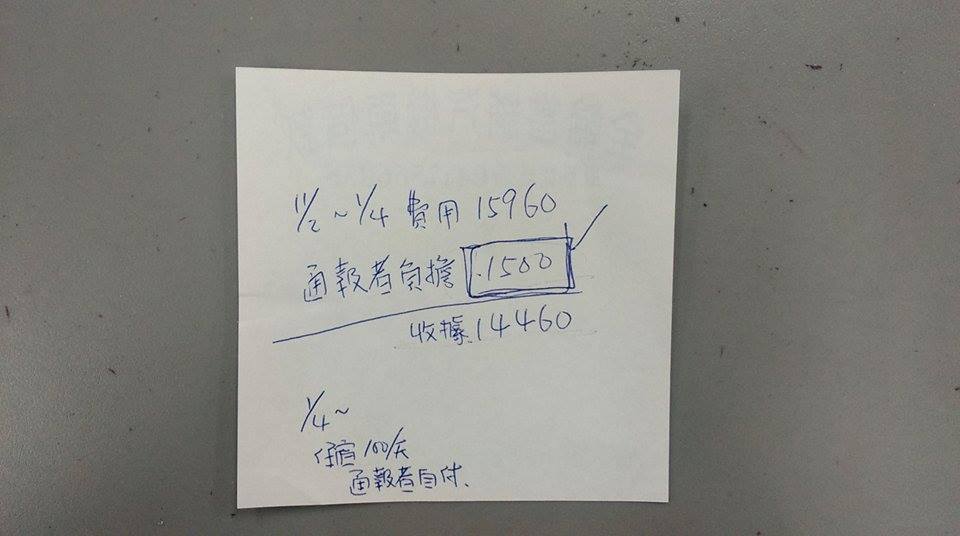 11/2～1/4 費用 15960
通報者負擔 1500
收據 14460
1/4～
住宿100/天
通報者自付、